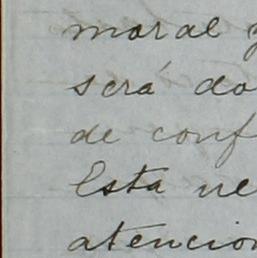 moral y
será do
de conf
Esta ne
atencion